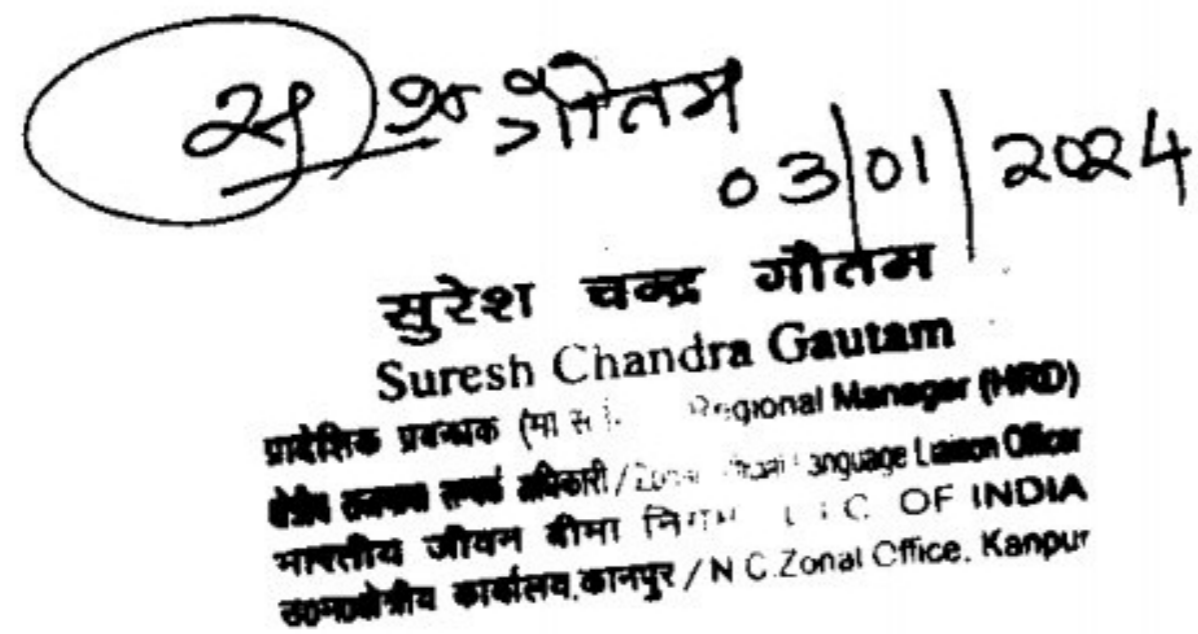 गौतम
03/01/2024
सुरेश चन्द्र गौतम
Suresh Chandra Gautam
प्रादेशिक प्रबन्धक (मा सं Regional Manager (HRD)
क्षेत्रीय राजभाषा सम्पर्क अधिकारी / Zonal Language Liaison Officer
भारतीय जीवन बीमा निगम L I C. OF INDIA
उ0म0क्षेत्रीय कार्यालय, कानपुर / N C. Zonal Office, Kanpur